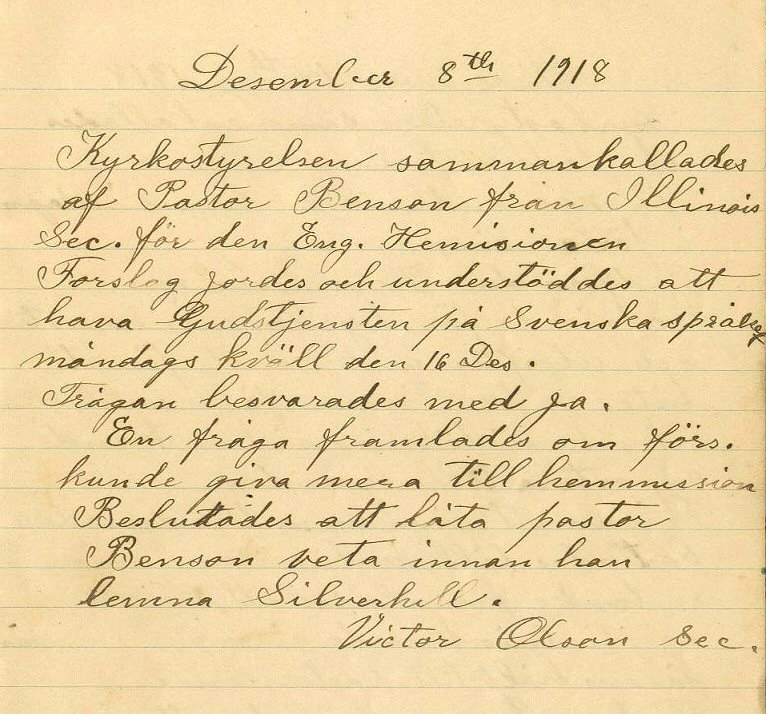 Desember 8th 1918
Kyrkostyrelsen sammankallades
af Pastor Benson från Illinois
Sec. för den Eng. Hemisionen
Forslag jordes och understöddes att
hava Gudstjensten på Svenska språket
måndags kväll den 16 Des.
Frågan besvarades med ja.
En fråga framlades om förs.
kunde giva mera till hemmission
Beslutades att låta pastor
Benson veta innan han
lemna Silverhill.
Victor Olson Sec.